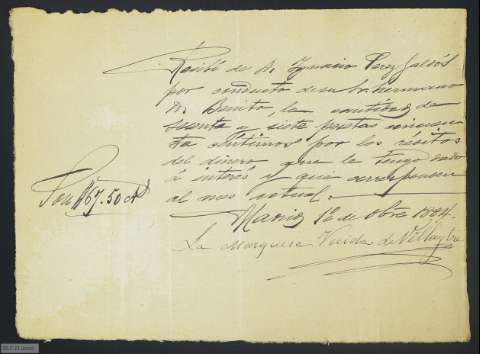 Recibí de D. Ygnacio Perez Galdós
por conducto de su hermano
D. Benito, la cantidad de
sesenta y siete pesetas cincuen
ta céntimos por los réditos
del dinero que le tengo dado
á interés y que corresponden
al mes actual.
Madrid 1º de 1884.
La Marquesa Viuda de
Son 67.50